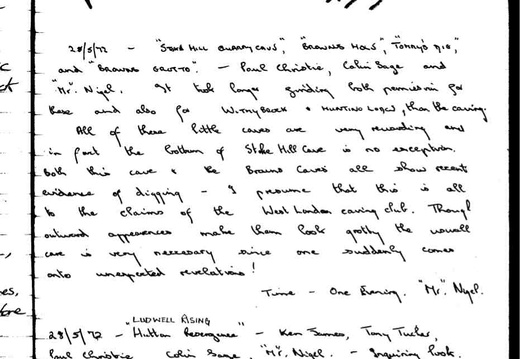 28/5/72 - "STOKE HILL QUARRY CAVES", "BROWNS HOLE",
and "BROWNS GROTTO". - Paul Christie, Colin Sage and
"Mr." Nigel. It took longer finding both permission for
these and also for WITHYBROOK + HUNTING LODGE, than the caving.
All of these little caves are very rewarding and
in fact the bottom of Stoke Hill Cave is no exception.
Both this cave + the Browns Caves all show recent
evidence of digging - I presume that this is all
to the claims of the West London caving club. Though
outward appearances make them look grotty the usual
care is very necessary since one suddenly comes
onto unexpected revelations!
Time - One Evening. "Mr." Nigel.
LUDWELL RISING
28/5/72 - "Hutton - Ken James, Tony Tucker,
Paul Christie Colin Sage, "Mr." Nigel. - Inquiring look.